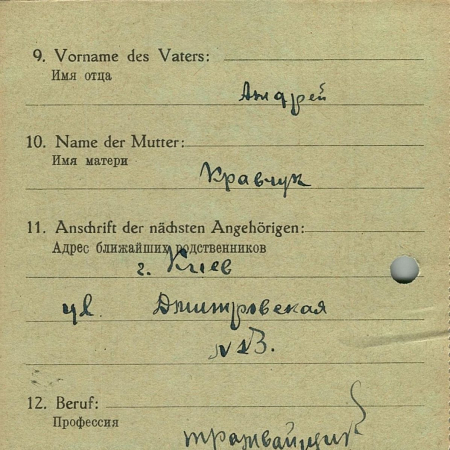 9. Vorname des Vaters:
Имя отца
Андрей
10. Name der Mutter:
Имя матери
Кравчук
11. Anschrift der nächsten Angehörigen:
Адрес ближайших родственников
г. Киев
ул. Дмитровская
N 13.
12. Beruf:
Профессия
трамвайщик